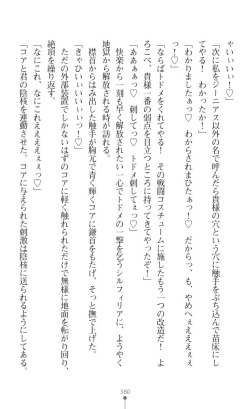 ゃいぃいぃぃ！♡」
「次に私をジーニアス以外の名で呼んだら貴様の穴という穴に触手をぶち込んで苗床にし
てやる！　わかったか！」
「わかりましたぁっ！♡　わからされまひたぁっ！♡　だからっ、も、やめへぇえええぇぇ
っ！♡」
「ならばトドメをくれてやる！　その戦闘コスチュームに施したもう一つの改造だ！　よ
ろこべ、貴様一番の弱点を目立つところに持ってきてやったぞ！」
「あああぁぁっ♡　刺してっ！　トドメ刺してぇっ！♡」
　快楽から一刻も早く解放されたい一心でトドメの一撃を乞うシルフィリアに、ようやく
地獄から解放される時が訪れる。
　襟首からはみ出した触手が胸元で青く輝くコアに鎌首をもたげ、そっと撫で上げた。
「きゃひいぃいぃぃっ！♡」
　ただの外部装置でしかないはずのコアに軽く触れられただけで無様に地面を転がり回り、
絶頂を繰り返す。
「なにこれ、なにこれえええぇぇっ！♡」
「コアと君の陰核を連動させた。コアに与えられた刺激は陰核に送られるようにしてある。
380